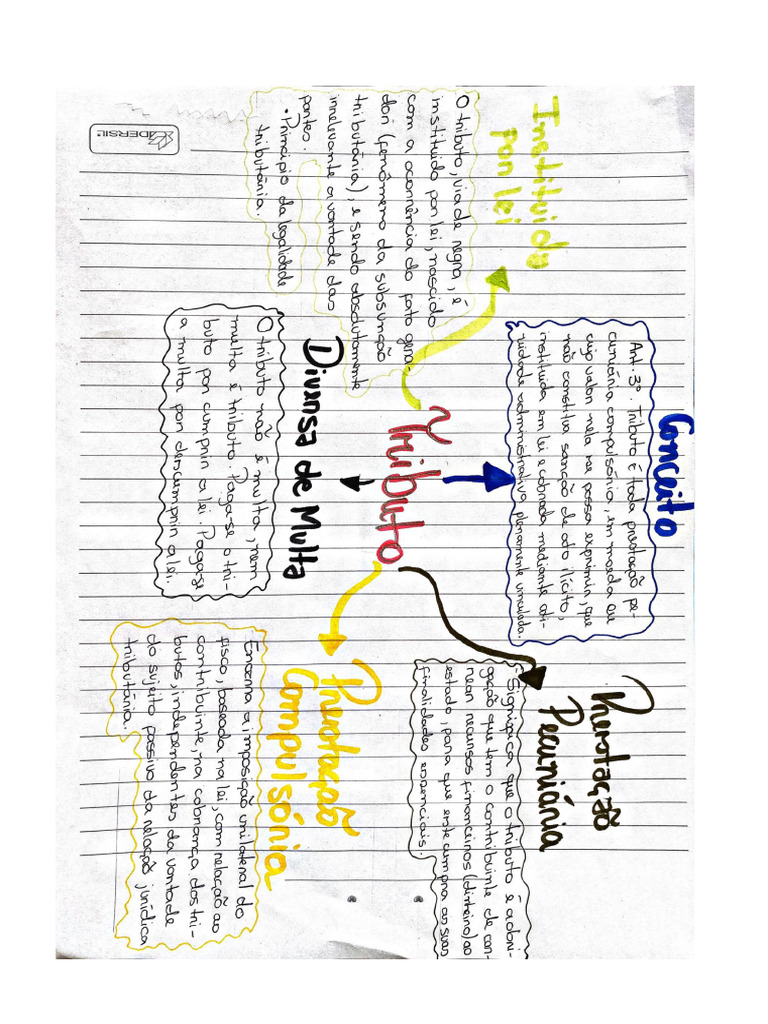 Tributo
Conceito
Art. 3º. Tributo é toda prestação pe-
cuniária compulsória, em moeda ou
cujo valor nela se possa exprimir, que
não constitua sanção de ato ilícito,
instituída em lei e cobrada mediante ati-
vidade administrativa plenamente vinculada.
Prestação
Pecuniária
- Significa que o tributo é a obri-
gação que tem o contribuinte de en-
trear recursos financeiros (dinheiro) ao
estado, para que este cumpra as suas
finalidades essenciais.
Instituído
por lei
O tributo, via de regra, é
instituído por lei, nascido
com a ocorrência do fato gera-
dor (fenômeno da subsunção
tributária), e sendo absolutamente
irrelevante a vontade das
partes.
• Princípio da legalidade
tributária.
Diversa de Multa
O tributo não é multa, nem
multa é tributo. Paga-se o tri-
buto por cumprir a lei. Paga-se
a multa por descumprir a lei.
Prestação
Compulsória
Encerra a imposição unilateral do
fisco, baseada na lei, com relação ao
contribuinte, na cobrança dos tri-
butos, independentes da vontade
do sujeito passivo da relação jurídica
tributária.
CADERSIL